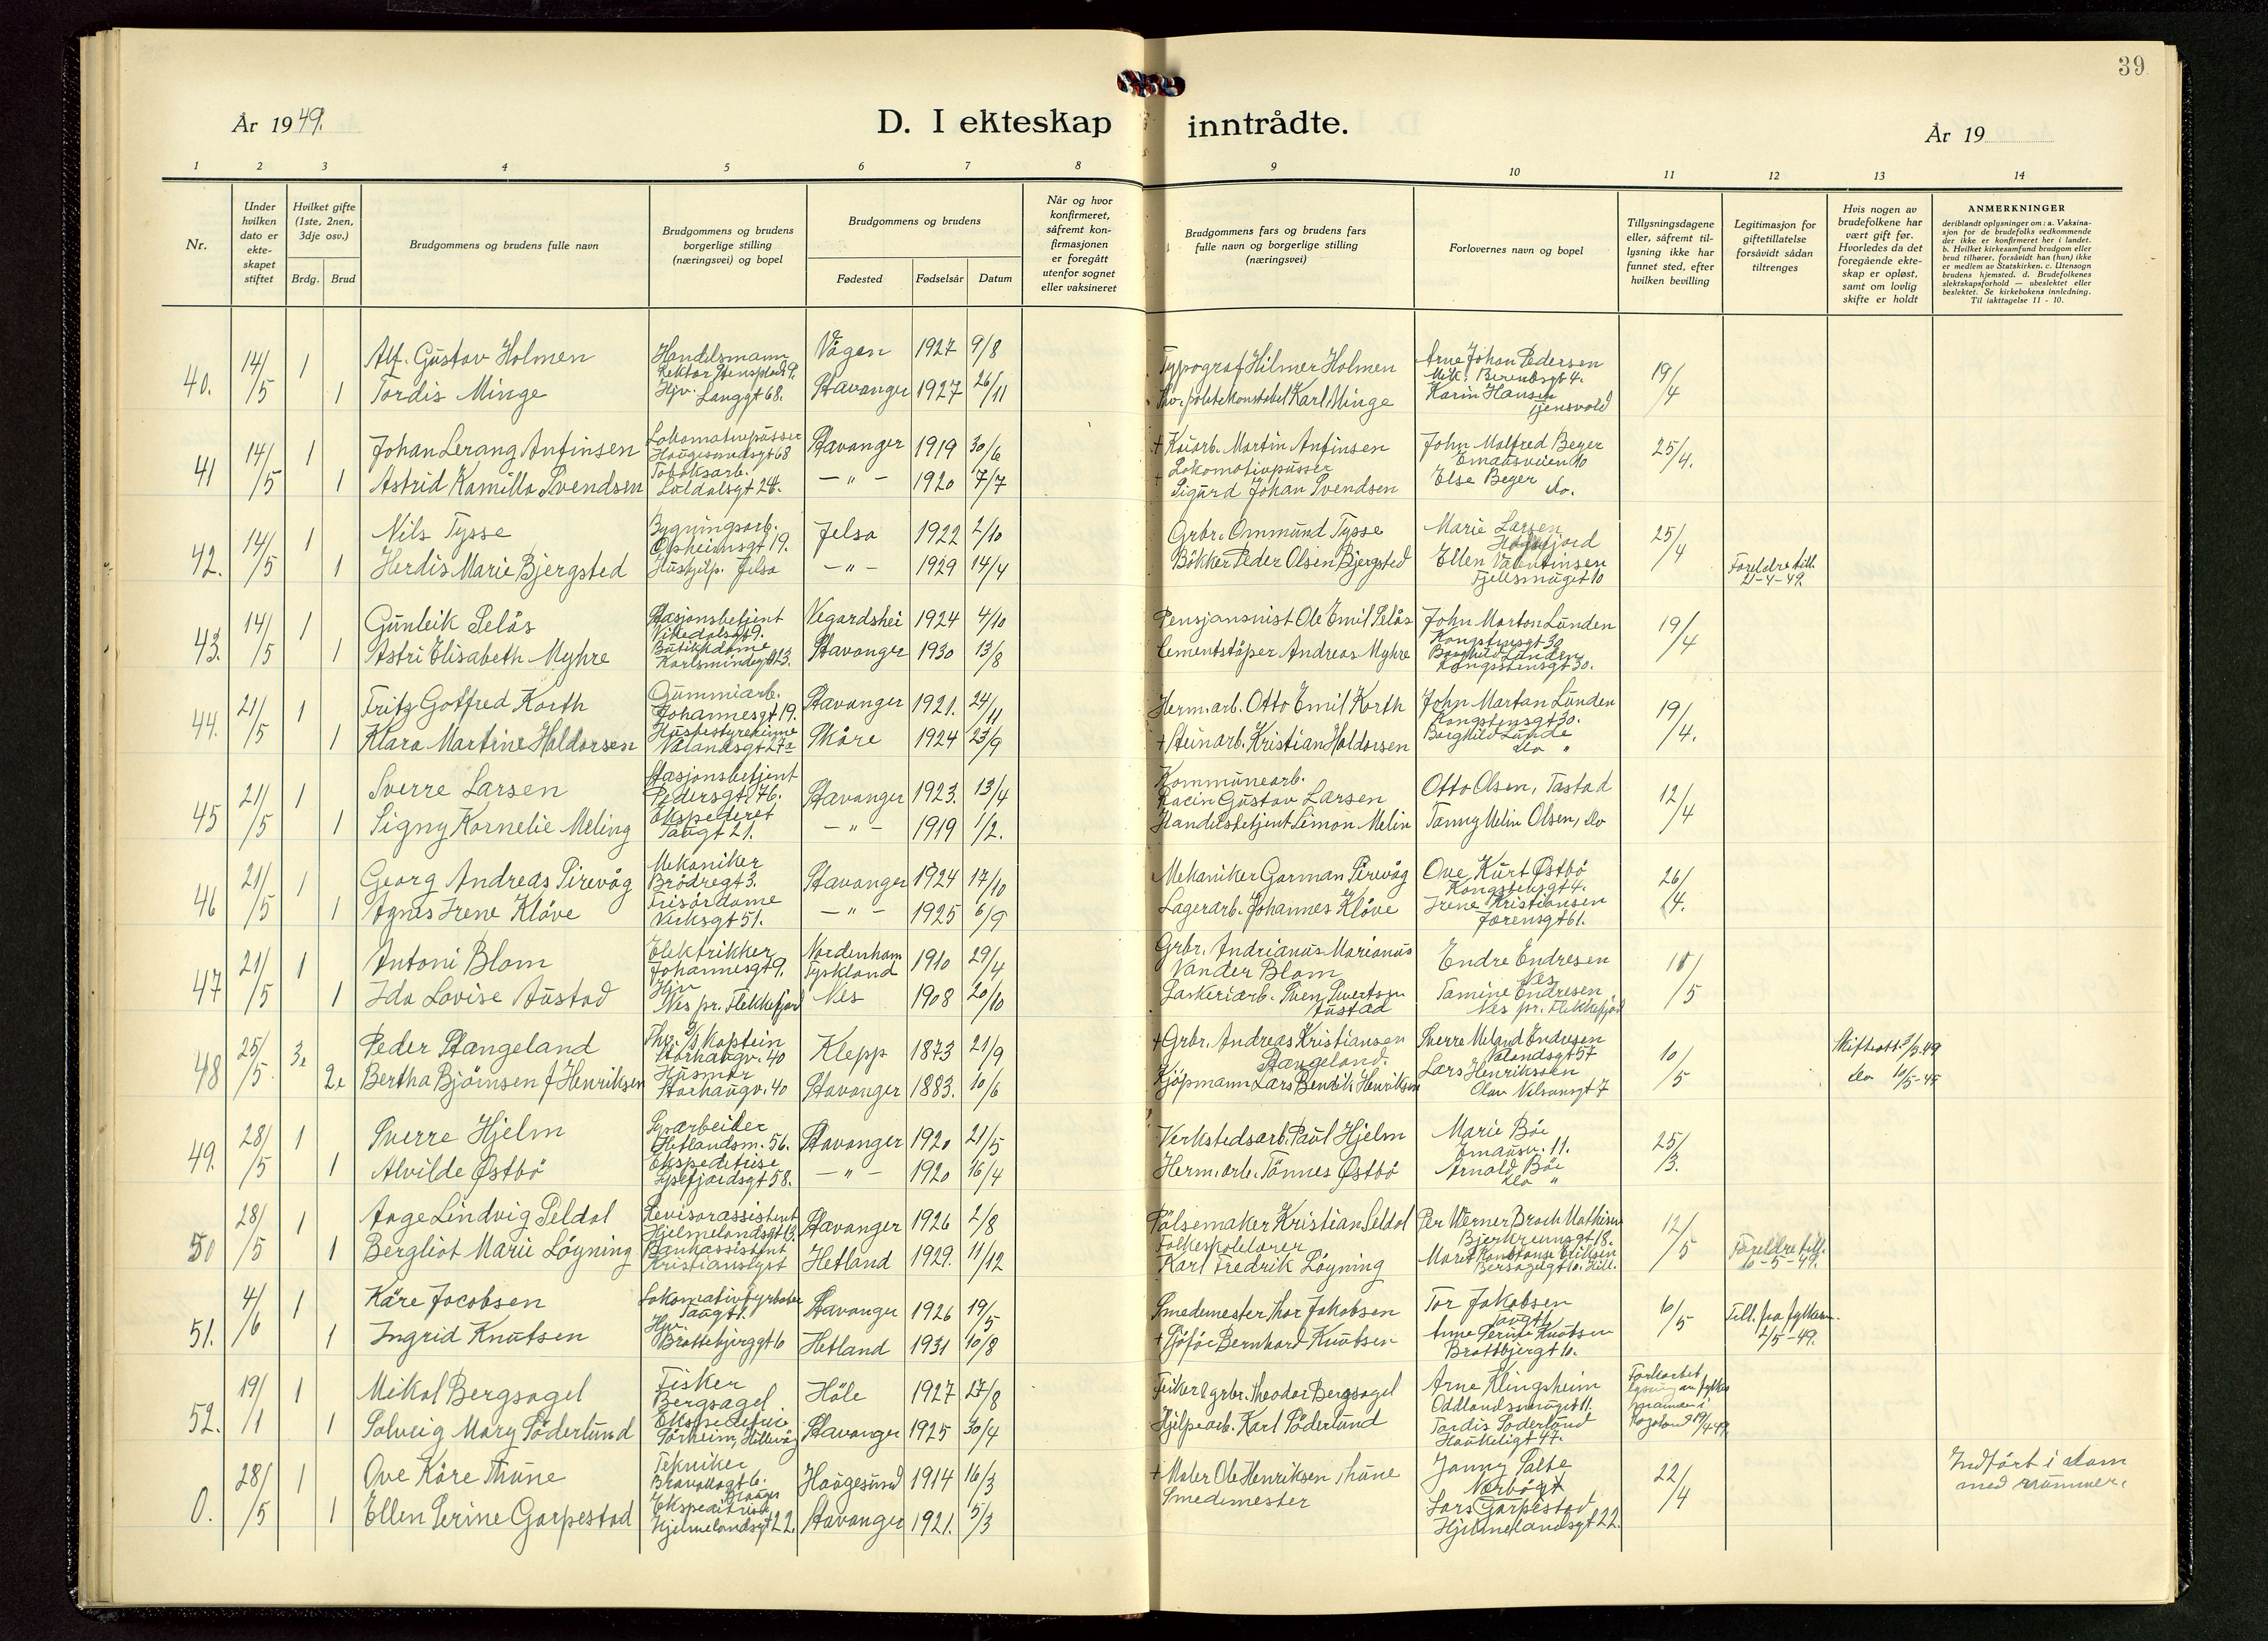 39
År 1949.
D. I ekteskap inntrådte.
År 19
1 2 3 4 5 6 7 8 9 10 11 12 13 14
Nr.
Under hvilken dato er ekteskapet stiftet
Hvilket gifte (1ste, 2nen, 3dje osv.)
Brdg. Brud
Brudgommens og brudens fulle navn
Brudgommens og brudens borgerlige stilling (næringsvei) og bopel
Brudgommens og brudens
Fødested Fødselsår Datum
Når og hvor konfirmeret, såfremt konfirmasjonen er foregått utenfor sognet eller vaksineret
Brudgommens fars og brudens fars fulle navn og borgerlige stilling (næringsvei)
Forlovernes navn og bopel
Tillysningsdagene eller, såfremt tillysning ikke har funnet sted, efter hvilken bevilling
Legitimasjon for giftetillatelse forsåvidt sådan tiltrenges
Hvis nogen av brudefolkene har vært gift før. Hvorledes da det foregående ekteskap er opløst, samt om lovlig skifte er holdt
ANMERKNINGER
deriblandt oplysninger om: a. Vaksinasjon for de brudefolks vedkommende der ikke er konfirmeret her i landet. b. Hvilket kirkesamfund brudgom eller brud tilhører, forsåvidt han (hun) ikke er medlem av Statskirken. c. Utensogn brudens hjemsted. d. Brudefolkenes slektskapsforhold — ubeslektet eller beslektet. Se kirkebokens innledning. Til iakttagelse 11 - 10.
40. 14/5 1 Alf. Gustav Holmen Handelsmann Vågen 1927 9/8 Typograf Hilmer Holmen Arne Johan Pedersen 19/4
1 Tordis Minge Hjv. Langgt 68. Stavanger 1927 26/11 Karl Minge Karin Hansen Tjensvold
41 14/5 1 Johan Lerang Anfinsen Lokomotivpusser Haugesundsgt 68 Stavanger 1919 30/6 + Kaiarb. Martin Anfinsen John Malfred Beyer Emausveien 10 25/4.
1 Astrid Kamilla Svendsen Tobaksarb. Suldalsgt 24. — " — 1920 7/7 + Lokomotivpusser Sigurd Johan Svendsen Else Beyer do.
42. 14/5 1 Nils Tysse Bygningsarb. Opheimsgt 19. Jelsa 1922 2/10 Grbr. Ommund Tysse Marie Larsen 25/4
1 Herdis Marie Bjergsted Hushjelp. Jelsa — " — 1929 14/4 Bökker Peder Olsen Bjergsted Ellen Valentinsen Fjellsmuget 10 Foreldre till. 21-4-49.
43. 14/5 1 Gunleik Selås Stasjonsbetjent Vikedalsgt 9. Vegardshei 1924 4/10 Pensjonist Ole Emil Selås John Marton Lunden Kongstensgt 30 19/4
1 Astri Elisabeth Myhre Butikkdame Karlsmindegt 13. Stavanger 1930 13/8 Cementstöper Andreas Myhre Borghild Lunden Kongsstensgt 30.
44. 21/5 1 Fritz Gotfred Korth Gummiarb. Johannesgt 19. Stavanger 1921. 24/11 Herm.arb. Otto Emil Korth John Martan Lunden Kongstensgt 30. 19/4.
1 Klara Martine Haldorsen Husbestyrerinne Vålandsgt 27a Skåre 1924 23/9 + Steinarb. Kristian Haldorsen Borghild Lunde do "
45 21/5 1 Sverre Larsen Stasjonsbetjent Pedersgt. 76. Stavanger 1923. 13/4 Kommunearb. Racin Gustav Larsen Otto Olsen, Tastad 12/4
1 Signy Kornelie Meling Ekspederet Taugt 21. — " — 1919 1/2. Handelsbetjent Simon Melin Tanny Melin Olsen, do
46 21/5 1 Georg Andreas Sirevåg Mekaniker Brödregt 3. Stavanger 1924 17/10 Mekaniker Garman Sirevåg Ove Kurt Østbö Kongstensgt 4. 26/4.
1 Agnes Irene Klöve Frisördame Verksgt 51. — " — 1925 6/9 Lagerarb. Johannes Klöve Irene Kristiansen Jorensgt 61.
47 21/5 1 Antoni Blom Elektrikker Johannesgt 9. Nordenham Tyskland 1910 29/4 Grbr. Andrianus Marianus Vander Blom Endre Endresen Nes 11/5
1 Ida Lovise Austad Hjv Nes pr. Flekkefjord Nes 1908 20/10 Garveriarb. Sven Sivertsen Austad Tamine Endresen Nes pr. Flekkefjord
48 25/5. 3e Peder Stangeland Kaptein Storhaugv. 40 Klepp 1873 21/9 + Grbr. Andreas Kristiansen Stangeland. Sverre Meland Endresen Vålandsgt 57 10/5 Skifteatt. 2/5-49
2e Bertha Björnsen f Henriksen Husmor Storhaugv. 40 Stavanger 1883. 10/6 Kjöpmann Lars Bendik Henriksen Lars Henrikssen Olav Nilsensgt 7 do 10/5-45
49. 28/5 1 Sverre Hjelm Hetlandsm. 56. Stavanger 1920 21/5 Verkstedsarb. Paul Hjelm Marie Böe Emausv. 11. 25/3.
1 Alvilde Østbö Ekspeditrise Lysefjordsgt 58. — " — 1920 16/4 Herm.arb. Tönnes Østbö Arnold Böe do "
50 28/5 1 Aage Lindvig Seldal Revisorassistent Hjelmelandsgt 13. Stavanger 1926 2/8 Pölsemaker Kristian Seldal Per Werner Broch Mathisen Bjerkreimsgt 18. 12/5
1 Bergliot Marie Löyning Bankassistent Kristianslyst Hetland 1929. 11/12 Folkeskolelærer Karl Fredrik Löyning Bersagelgt 10. Hill. Foreldre till. 6-5-49.
51. 4/6 1 Kåre Jacobsen Lokomotivfyrböter Taugt 1. Stavanger 1926 19/5 Smedemester Thor Jakobsen Tor Jakobsen Taugt 6/5 Till. fra fylkesm. 2/5-49.
1 Ingrid Knutsen Hjv. Brattebjerggt 10 Hetland 1931 10/8 + Sjåfør Bernhard Knutsen Anne Serine Knutsen Brattbjergt 10.
52. 19/1 1 Mikal Bergsagel Fisker Bergsagel Höle 1927 27/8 Fisker & grbr. Theodor Bergsagel Arne Klingsheim Oddlandsmuget 11.
1 Solveig Mary Söderlund Sörheim, Hillevåg Stavanger 1925 30/4 Hjelpearb. Karl Söderlund Tordis Soderlund Haukeligt 47.
0. 28/5 1 Ove Kåre Thune Tekniker Bravallagt 6. Haugesund 1914 16/3 + Maler Ole Henriksen Thune Janny Salte Nærbögt 22/4 Indfört i dom med nummer.
1 Ellen Serine Garpestad Ekspeditrise Hjelmelandsgt 22. Stavanger 1921. 5/3 Smedemester Lars Garpestad Hjelmelandsgt 22.